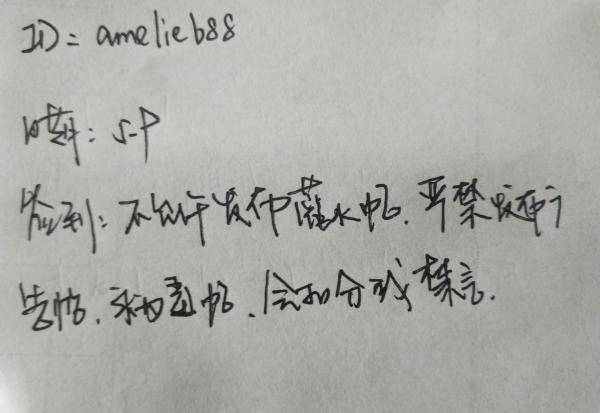 ID: amelieb88
昵称: S-P
规则: 不允许发布灌水帖. 严禁发布广
告帖. 求物帖. 会扣分或禁言.